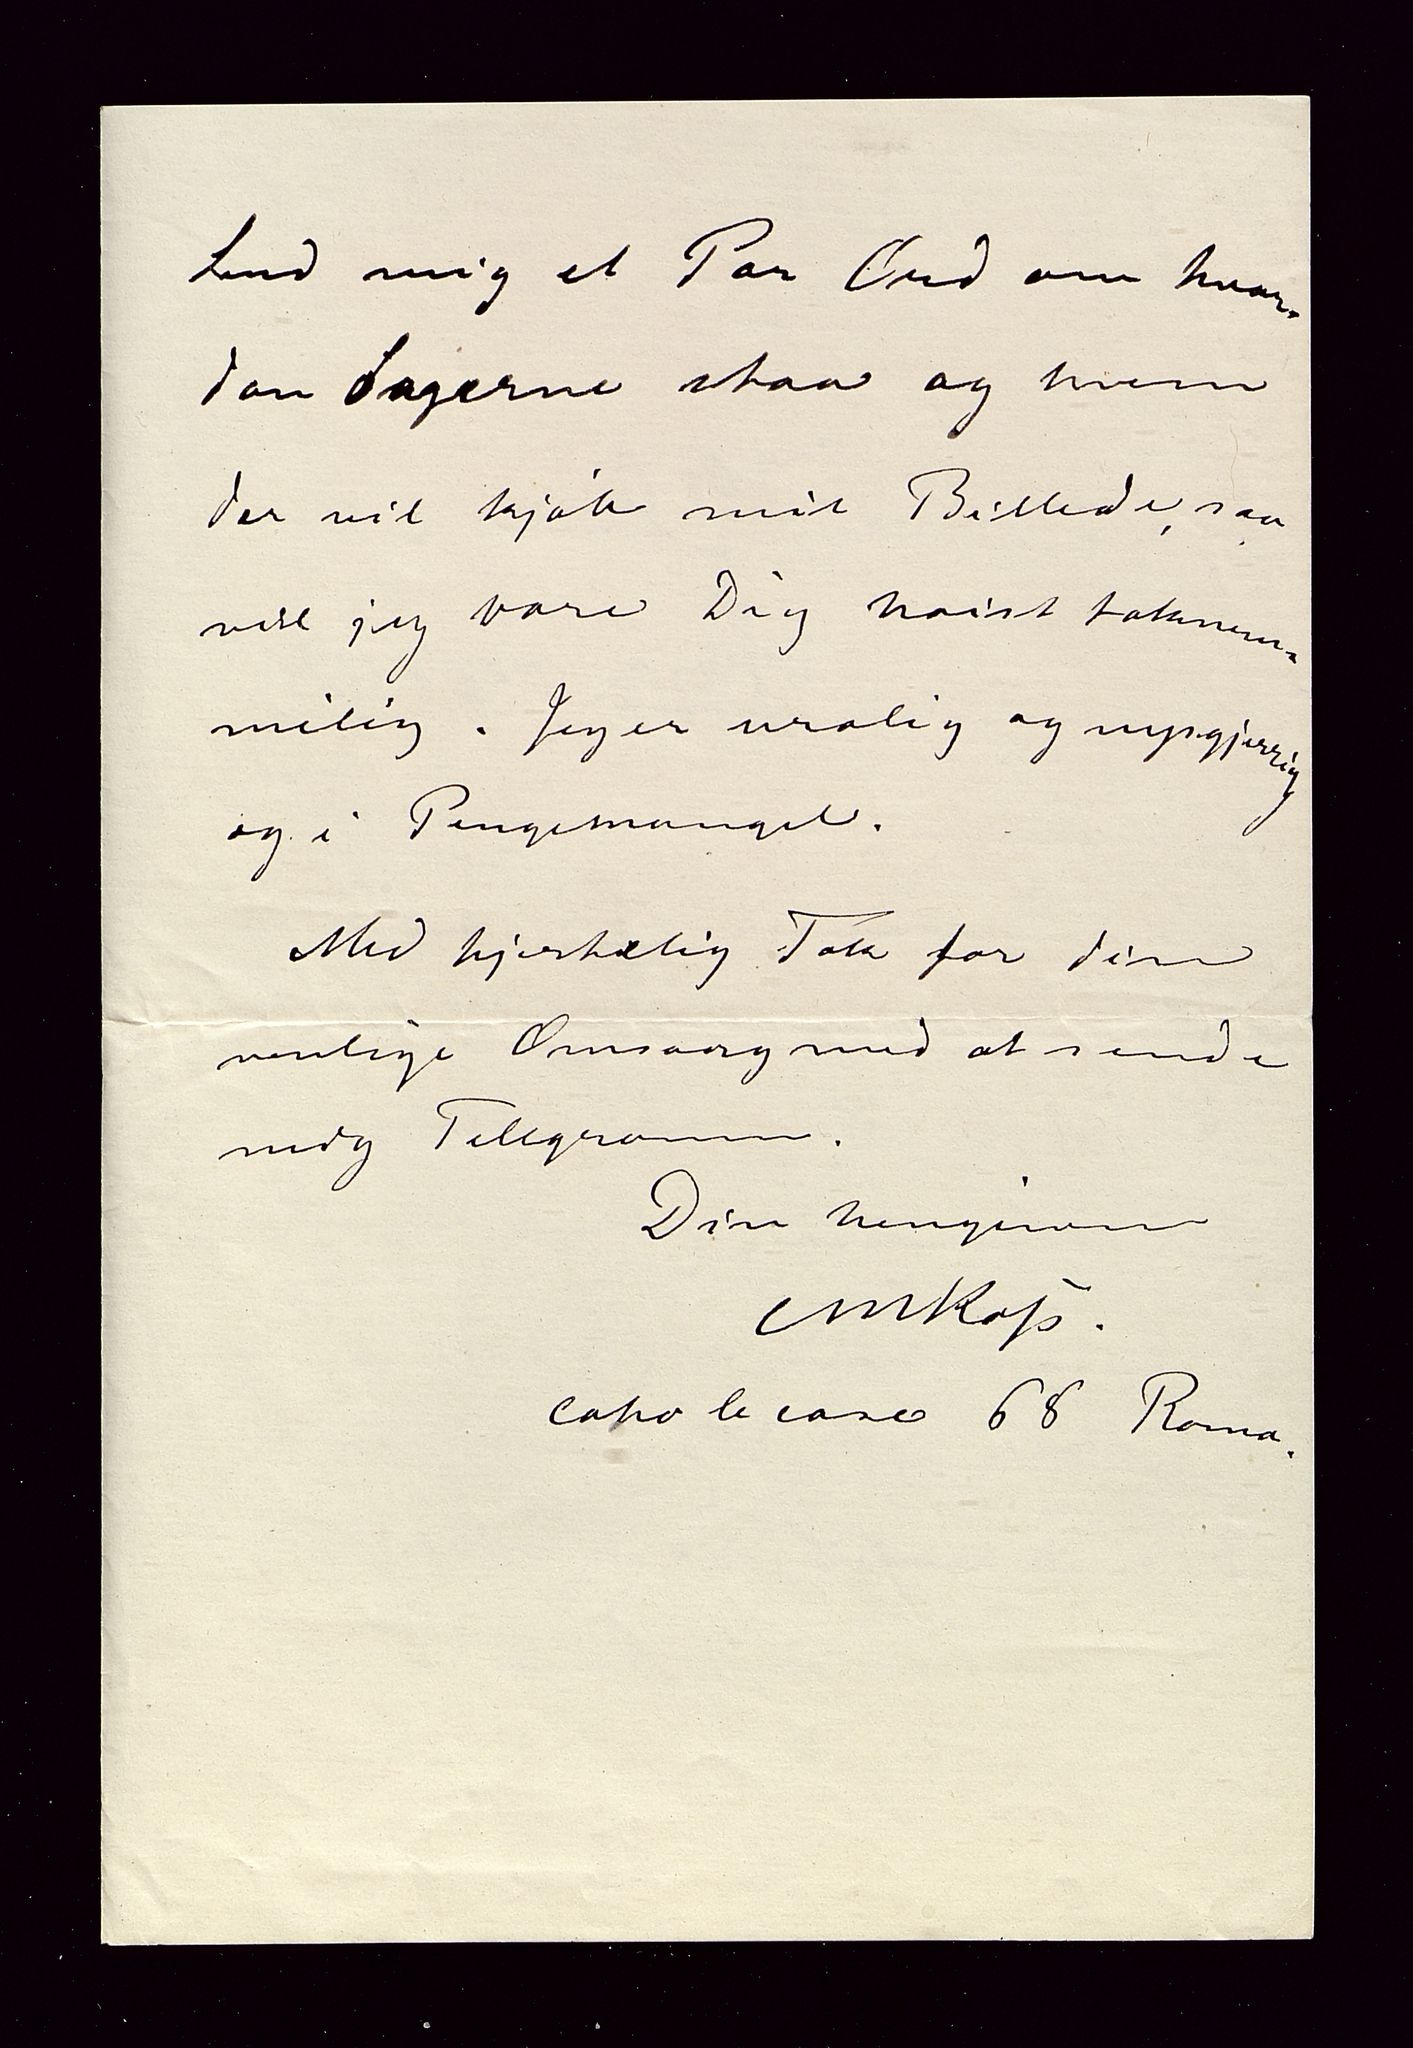 Send mig et Par Ord om hvor-
dan Sagerne staa og hvem
der vil kjøbe mit Billede, saa
vil jeg være Dig høist taknem-
melig. Jeg er urolig og nysgjerrig
og i Pengemangel.
Med hjertelig Tak for din
venlige Omsorg med at sende
mig Telegram.
Din hengivne
CMRoss.
capo le case 68 Roma.